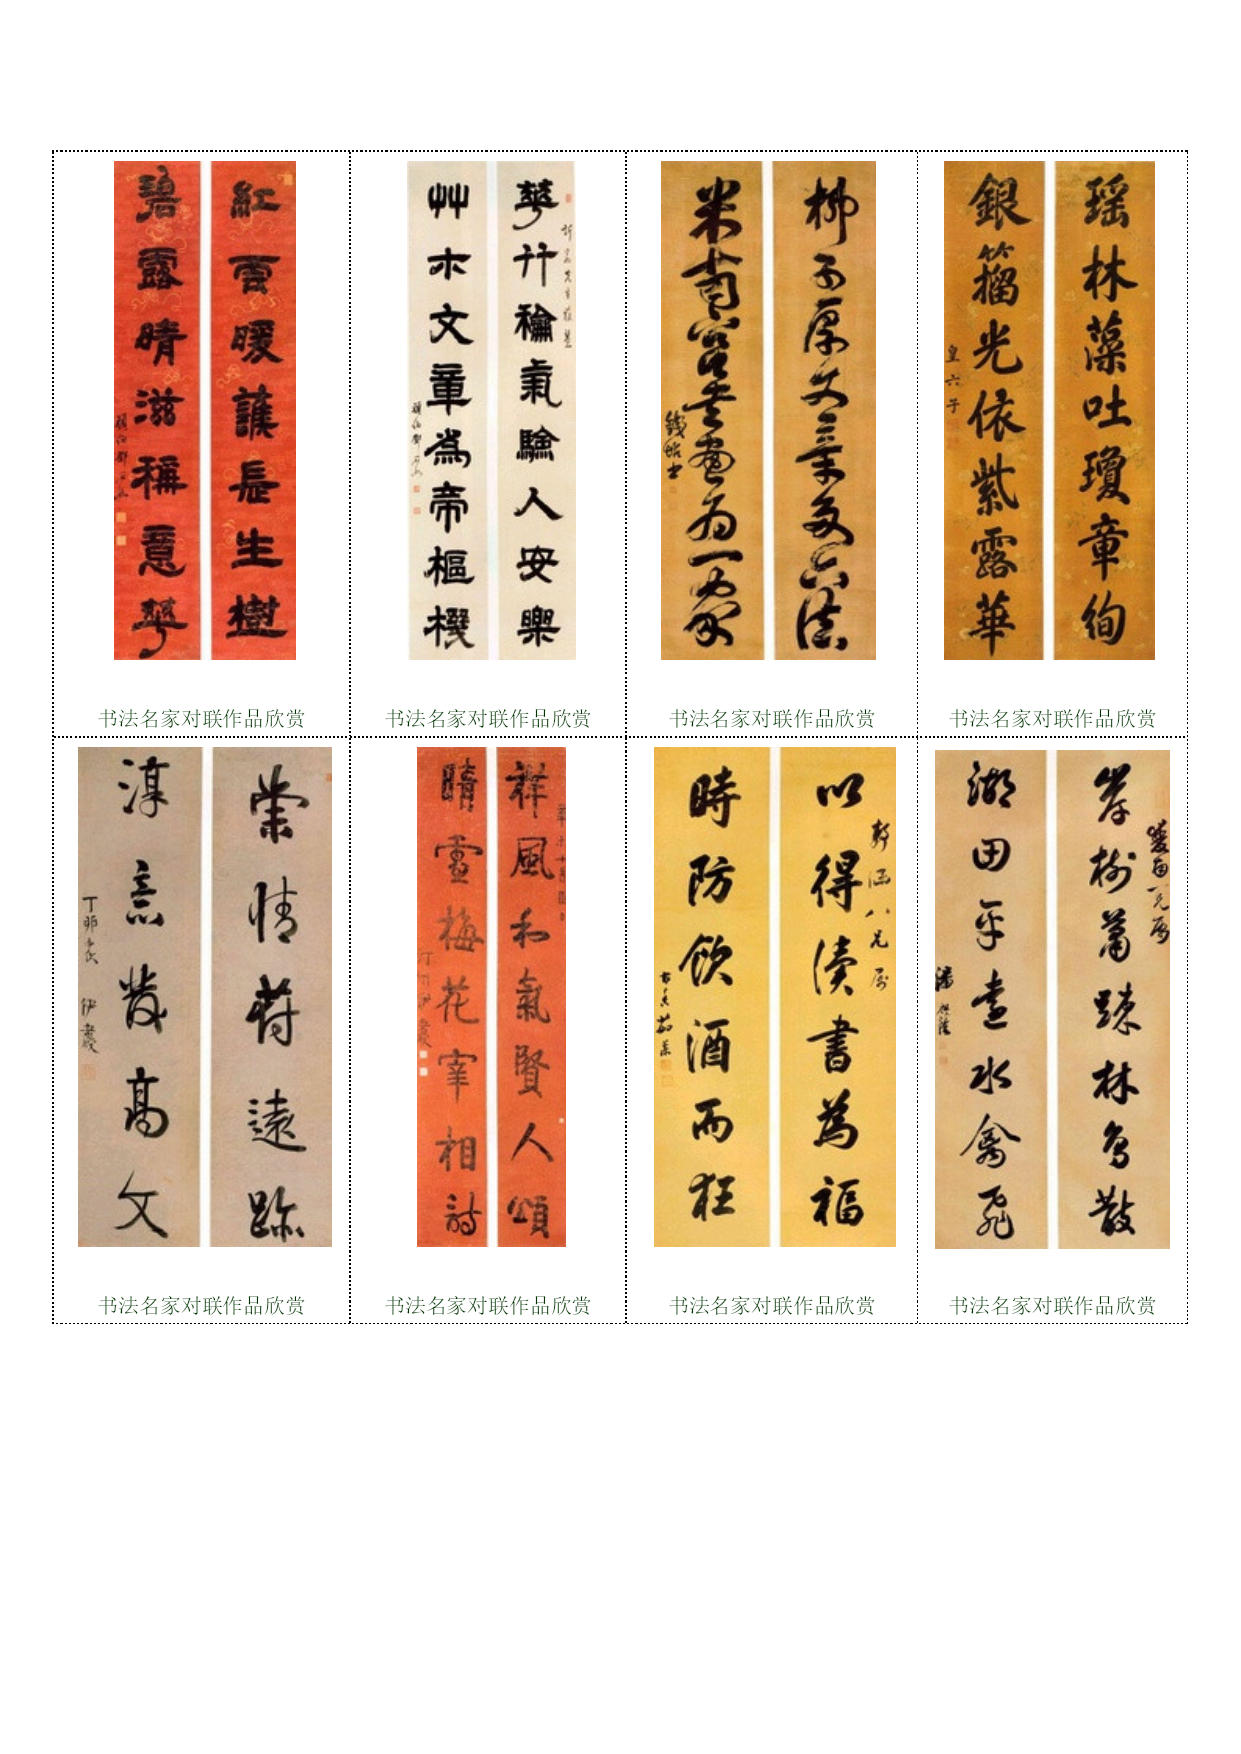 紅雲暖護長生樹
碧露晴滋稱意華
華竹龢氣驗人安樂
艸木文章為帝樞機
柳子厚文章要六法
米南宮書畫為一家
瑶林藻吐瓊章絢
銀籀光依紫露華
皇六子
书法名家对联作品欣赏
书法名家对联作品欣赏
书法名家对联作品欣赏
书法名家对联作品欣赏
情荷遠跡
淳意發高文
丁卯
伊秉
祥風和氣賢人頌
晴雪梅花宰相詩
以得讀書為福
時防飲酒而狂
八兄属
岸樹蕭疎林鳥散
湖田平遠水禽飛
书法名家对联作品欣赏
书法名家对联作品欣赏
书法名家对联作品欣赏
书法名家对联作品欣赏